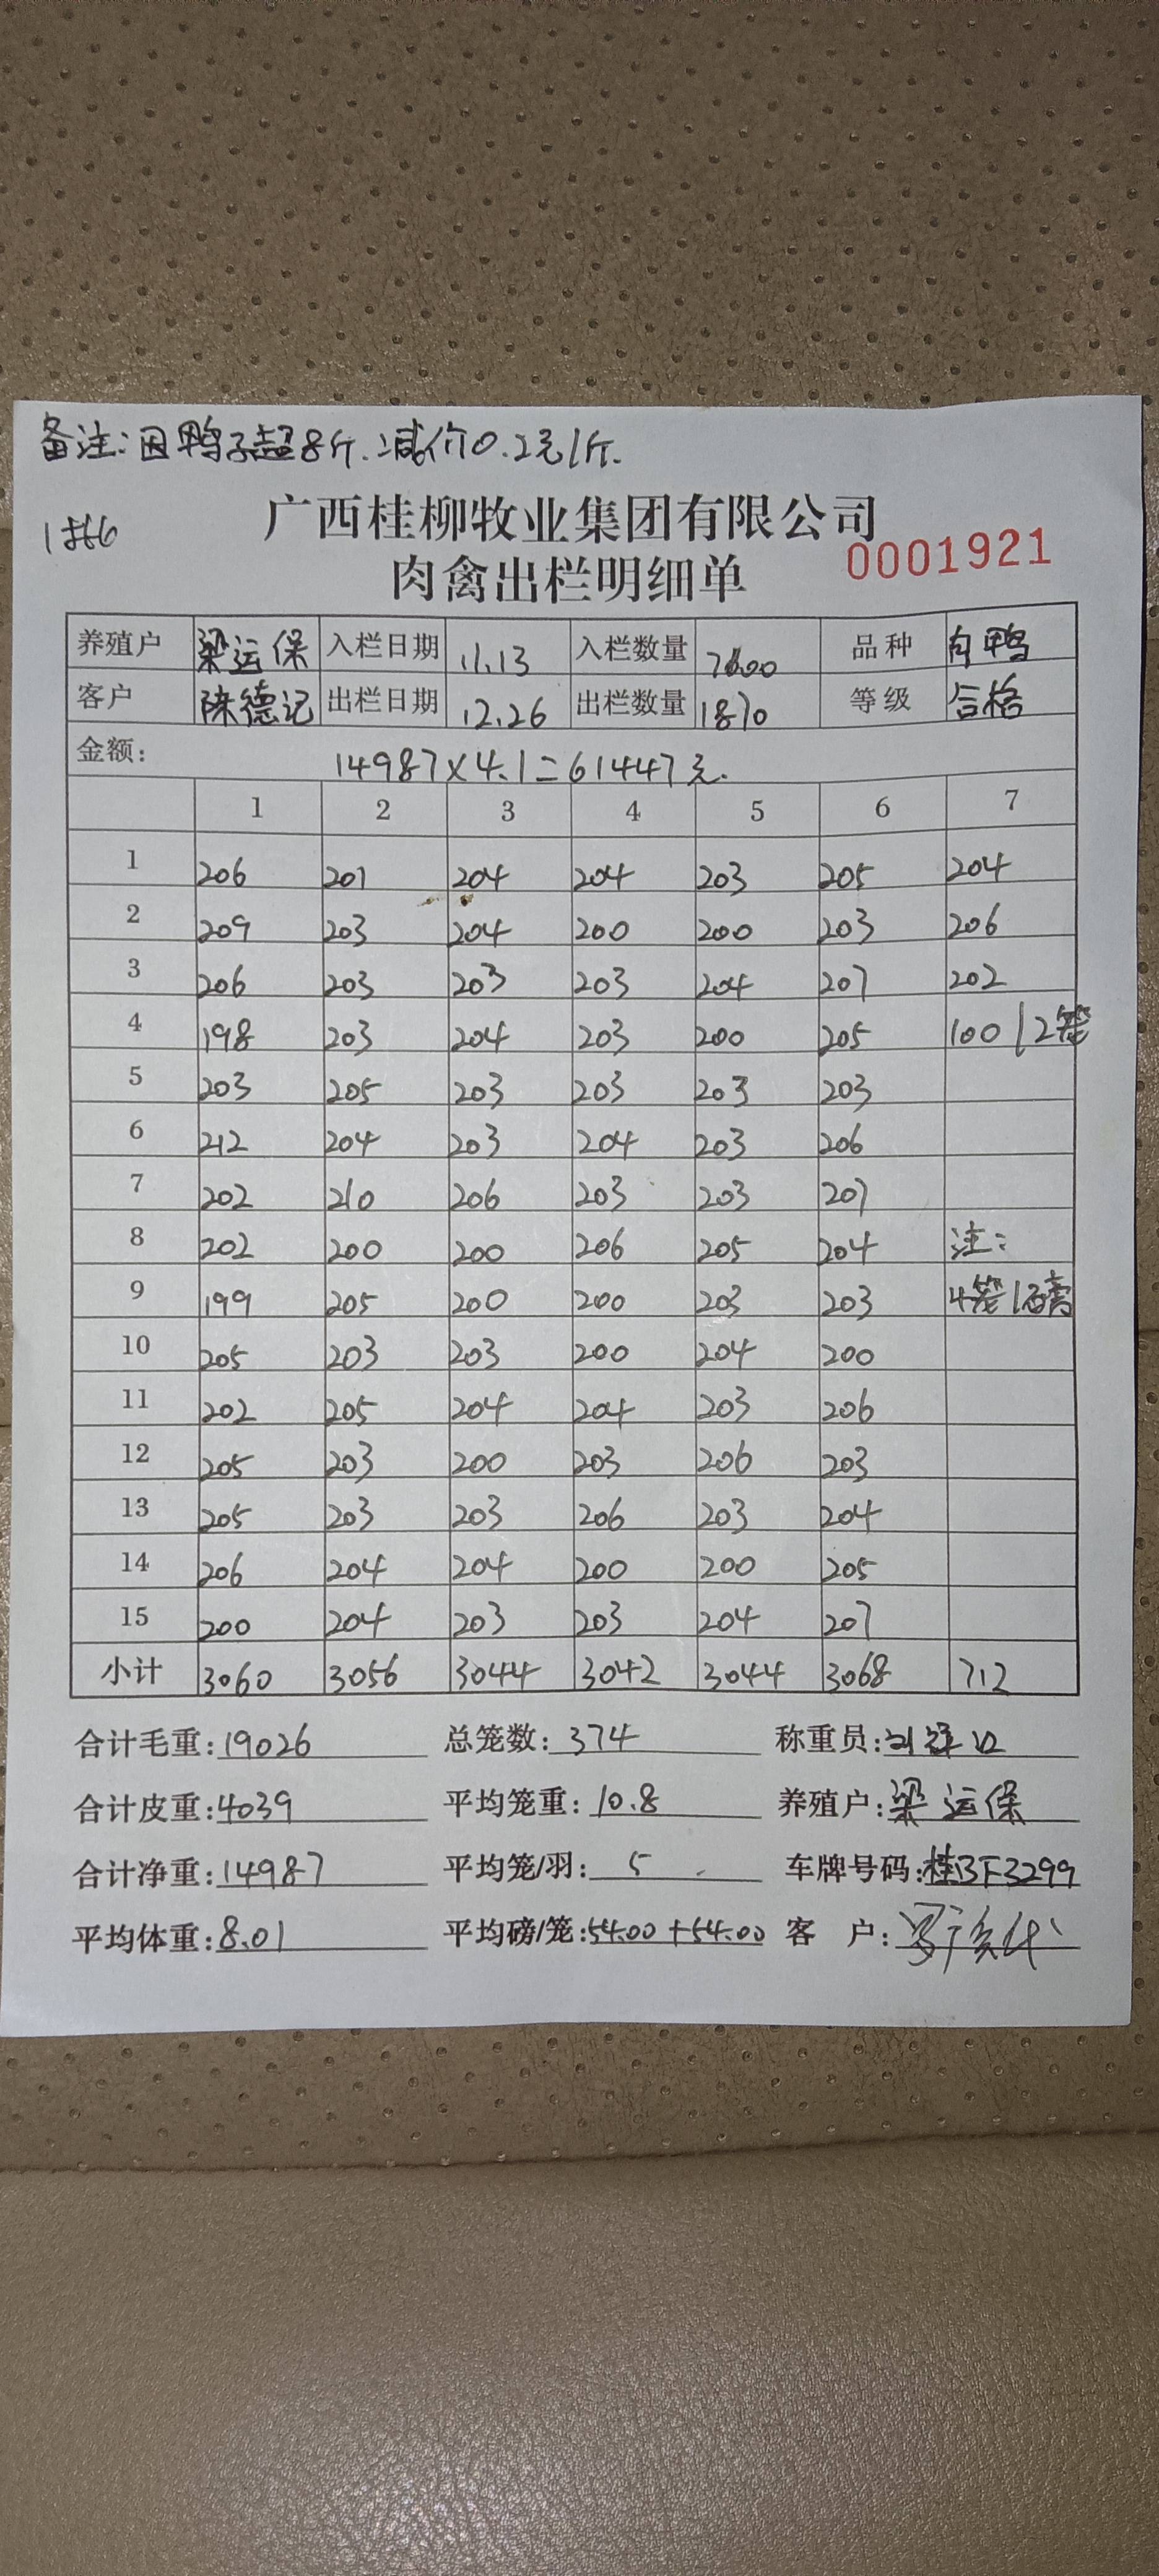 备注:因鸭子超8斤.减价0.2元1斤.
广西桂柳牧业集团有限公司
肉禽出栏明细单
0001921
养殖户 梁运保 入栏日期 11.13 入栏数量 7600 品种 白鸭
客户 陈德记 出栏日期 12.26 出栏数量 1870 等级 合格
金额: 14987×4.1=61447元.
1 2 3 4 5 6 7
1 206 207 204 204 203 205 204
2 209 203 204 200 200 203 206
3 206 203 203 203 204 207 202
4 198 203 204 203 200 205 100 / 2笼
5 203 205 203 203 203 203
6 212 204 203 204 203 206
7 202 210 206 203 203 207
8 202 200 200 206 205 204 注:
9 199 205 200 200 203 203 4笼1磅
10 205 203 203 200 204 200
11 202 205 204 204 203 206
12 205 203 200 203 206 203
13 205 203 203 206 203 204
14 206 204 204 200 200 205
15 200 204 203 203 204 207
小计 3060 3056 3044 3042 3044 3068 712
合计毛重:19026 总笼数:374 称重员:
合计皮重:4039 平均笼重:10.8 养殖户:梁运保
合计净重:14987 平均笼/羽:5 车牌号码:桂BF3299
平均体重:8.01 平均磅/笼:54.00+54.00 客 户: